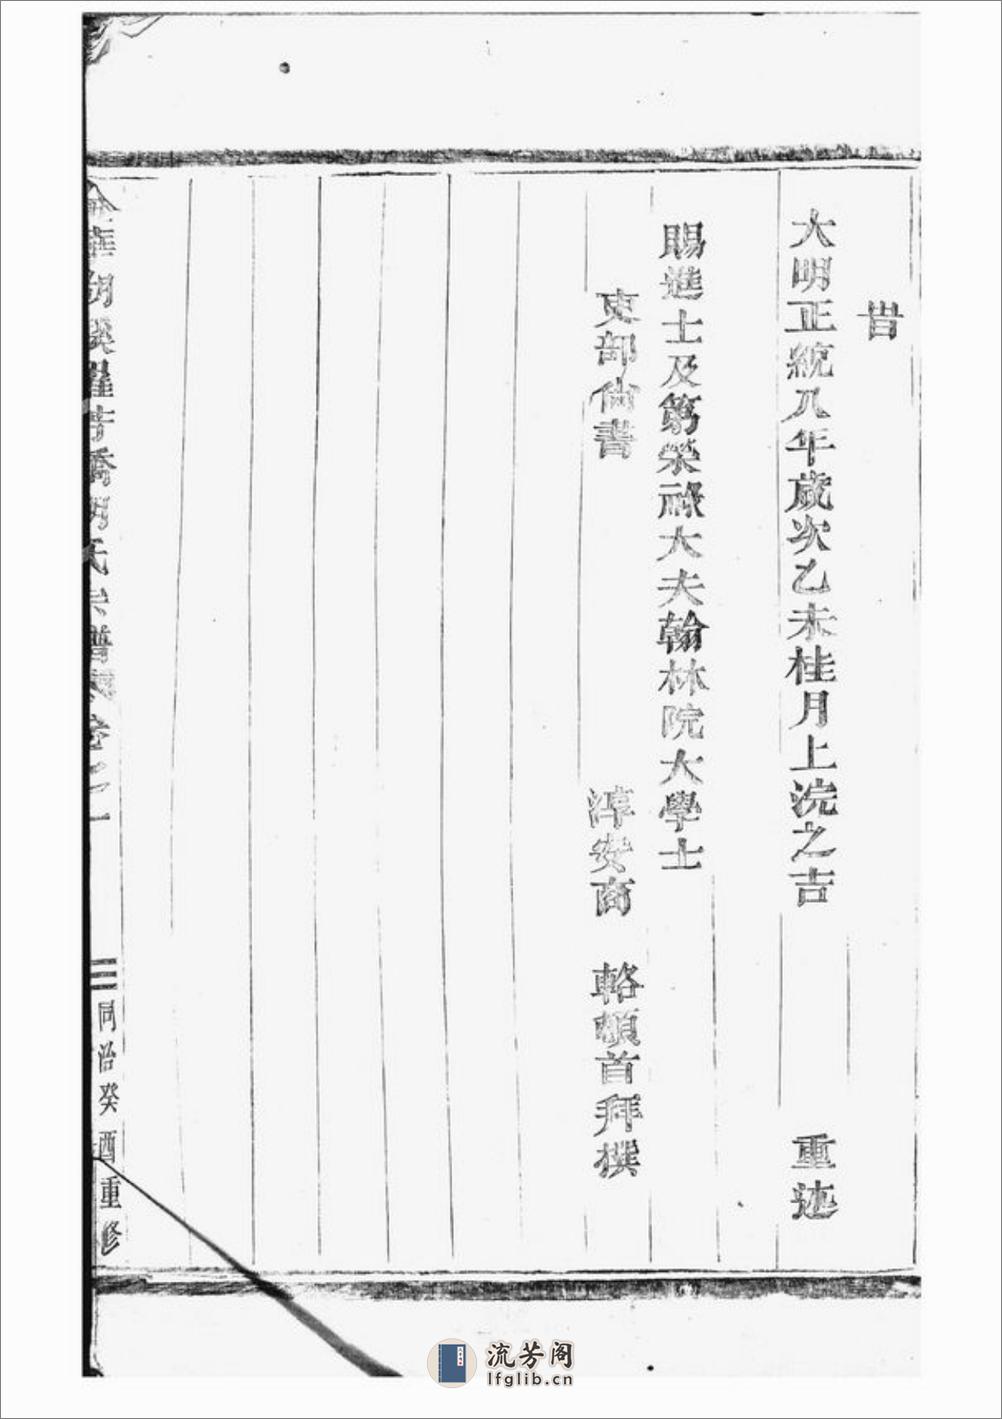 旹
大明正統八年歲次乙未桂月上浣之吉 重述
賜進士及第榮祿大夫翰林院大學士
吏部尚書 淳安商 輅頓首拜撰
金華胡溪羅青喬胡氏宗譜 卷之一
三 同治癸酉重修
流芳阁
lfglib.cn